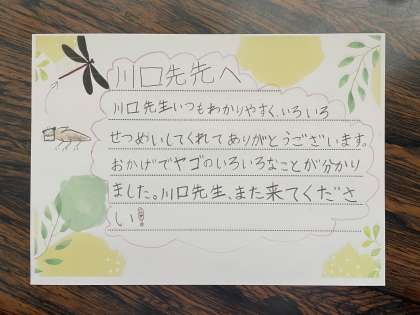 川口先先へ
川口先生いつもわかりやすく、いろいろ
せつめいしてくれてありがとうございます。
おかげでヤゴのいろいろなことが分かり
ました。川口先生、また来てくださ
い!